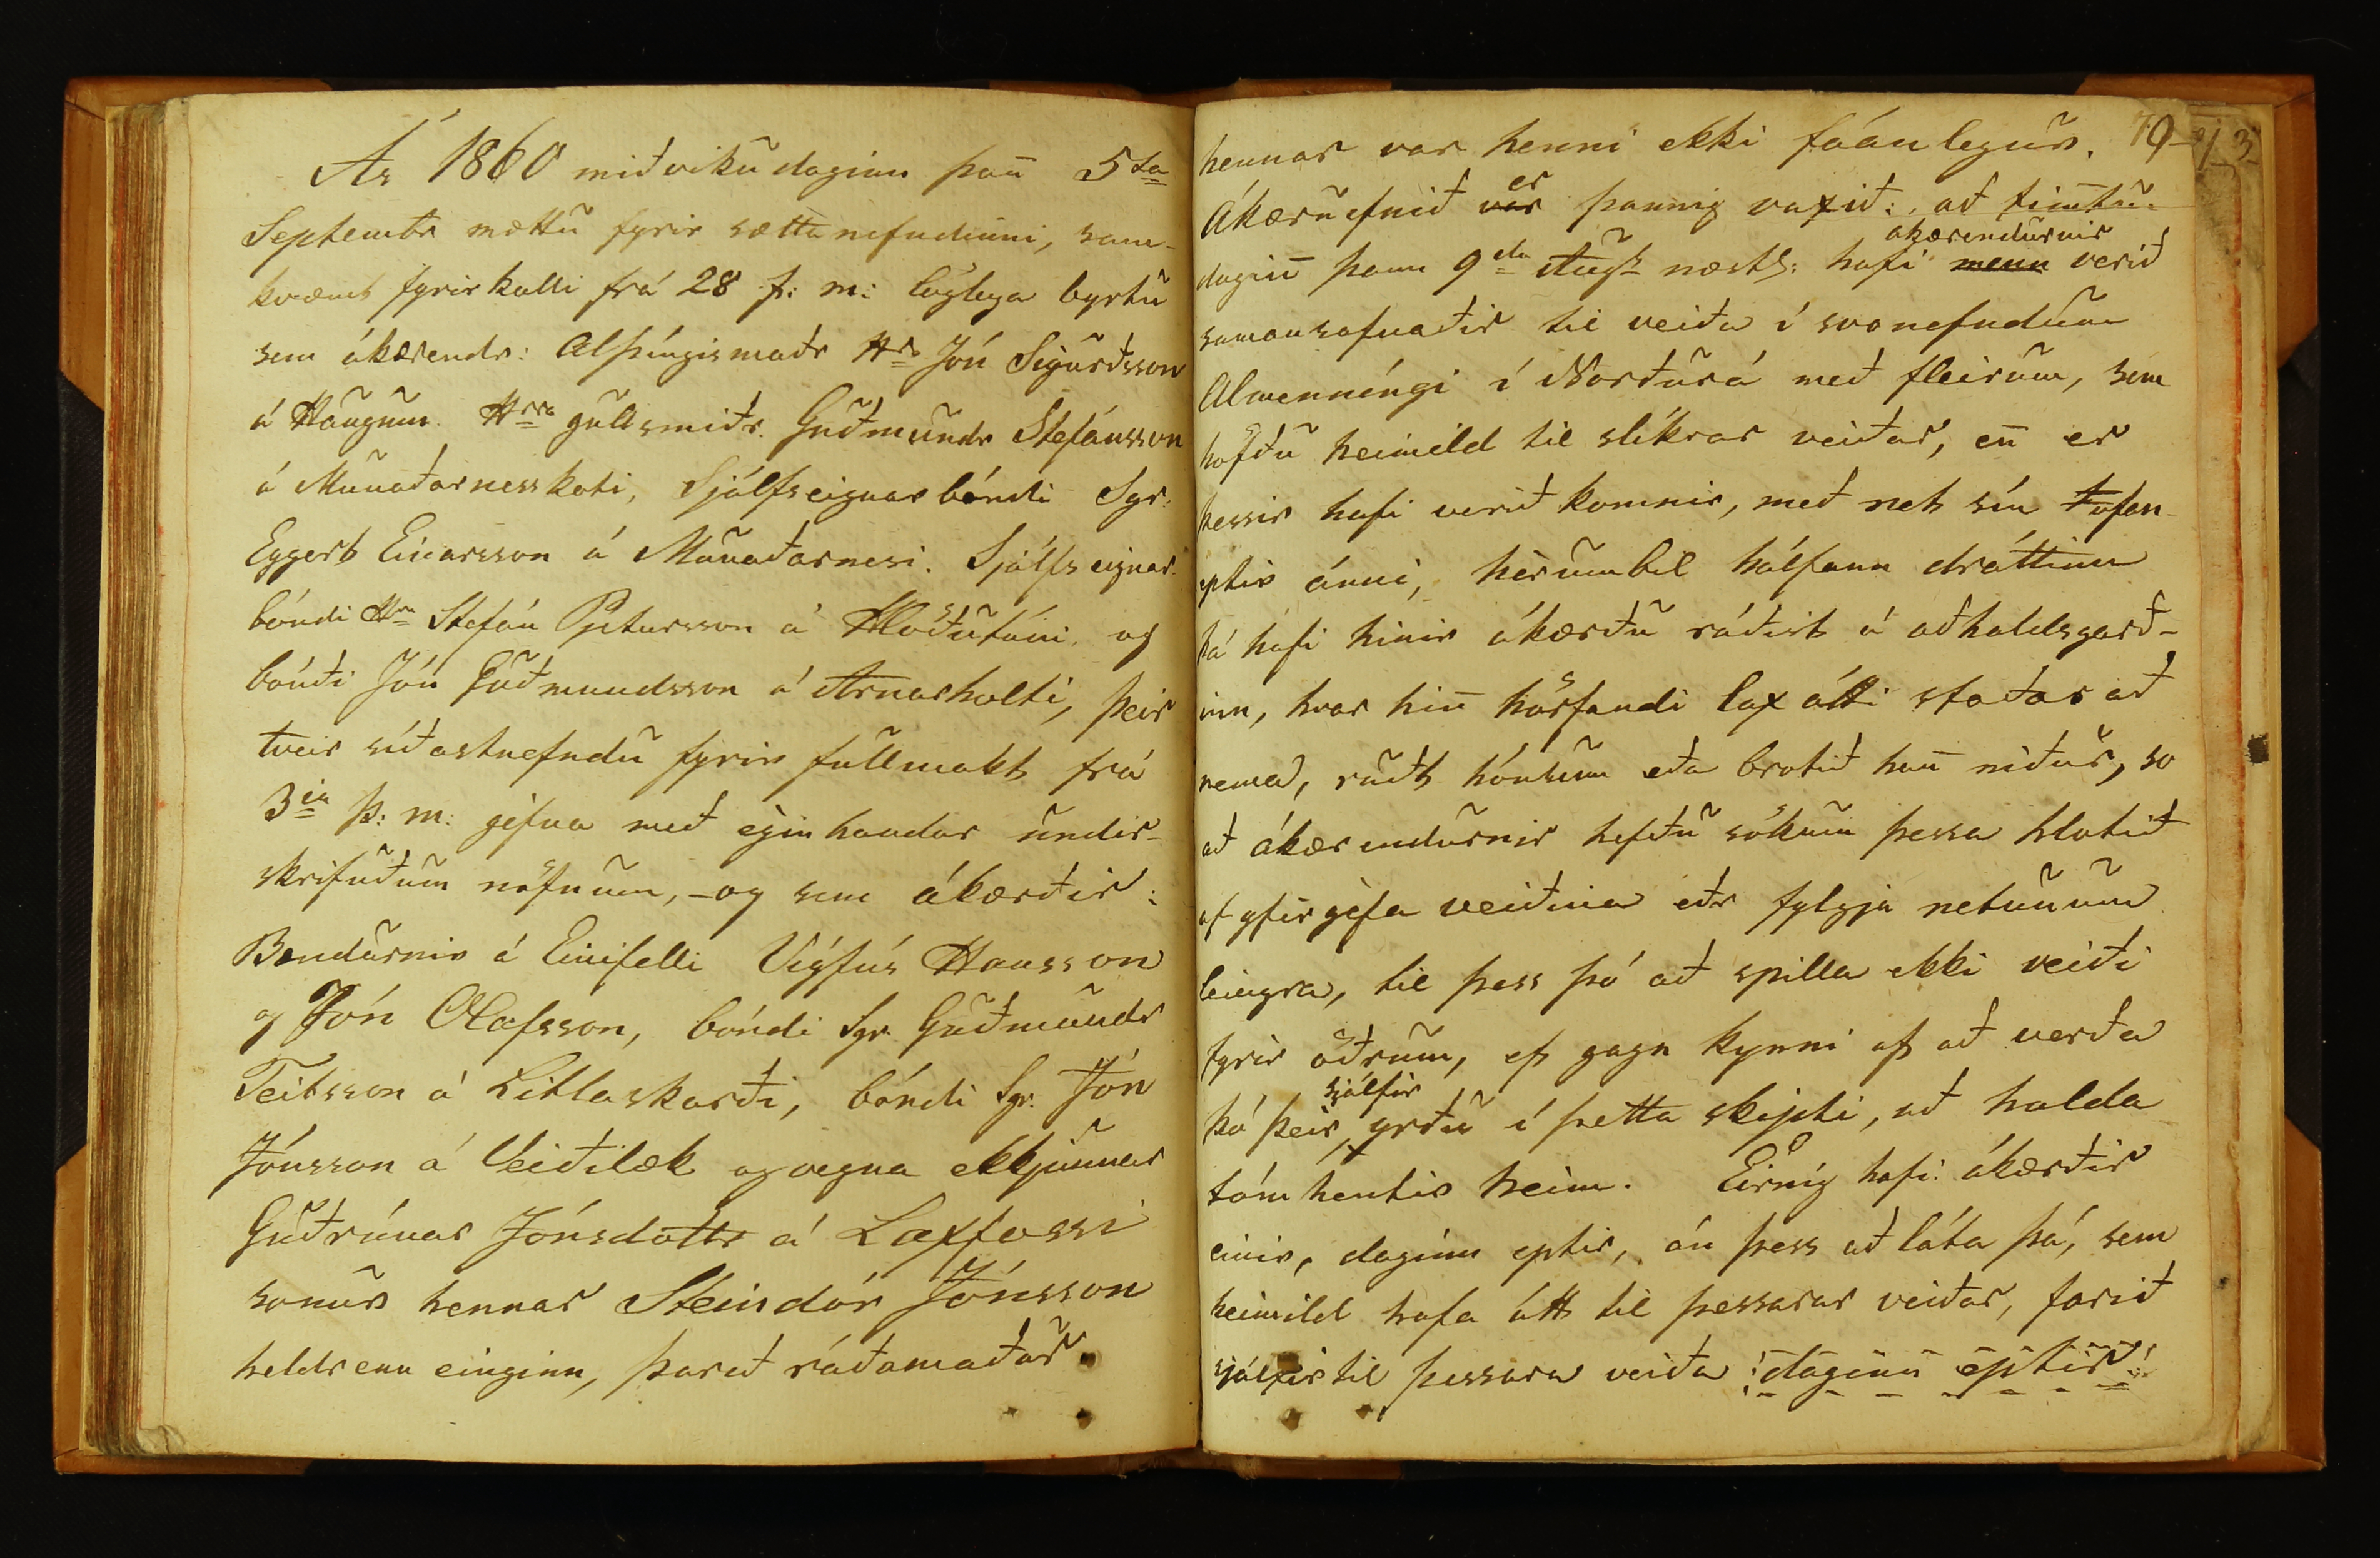 Ár 1860 miðvikudaginn þan̄ 5ta
Septembr mættu fyrir sættanefndinni, sam-
kvæmt fyrirkalli frá 28 f: m: löglega byrtu
sem ákærendr: Alþíngismaðr Hr Jón Sigurðsson
á Haugum. Hrra gullsmiðr. Guðmundr Stefánsson
á Munaðarnesskoti, Sjálfseignarbóndi Sgr.
Eggert Einarsson á Munaðarnesi. Sjálfseignar-
bóndi Hrr Stefán Pjetursson á Hlöðutúni, og
bóndi Jón Guðmundsson á Arnarholti, þeir
tveir síðastnefndu fyrir fullmakt frá
3ja þ: m: géfna með eigin handar undir-
skrifuðum nöfnum, - og sem ákærðir:
Bændurnir á Einifelli Vigfús Hansson
og Jón Olafsson, bóndi Sgr. Guðmundr
Teitsson á Litlaskarði, bóndi Sgr. Jón
Jónsson á Veiðilæk og vegna ekkjunnar
Guðrúnar Jónsdottr á Laxfossi
sonur hennar Steindór Jónsson
heldr enn einginn, þareð ráðamaður
hennar var henni ekki fáanlegur. 79 913
er
Ákæruefnið var þannig vaxið: að fimtu-
akærendurnir
dagin̄ þann 9da Augst næstl: hafi menn verið
samansafnaðir til veiða í svonefndum
Almenníngi í Norðurá með fleirum, sem
höfðu heimild til slíkrar veiðar, en̄ er
þessir hafi verið komnir, með net sín ofan
eptir ánni, hèrumbil hálfann dráttinn
þá hafi hinir ákærðu ráðist á aðhaldsgarð-
inn, hvar hin̄ hörfandi lax átti staðar að
nema, rudt hónum eða brotið han̄ niður, so
að ákærendurnir hefðu sökum þessa hlotið
af yfirgefa veiðina eðr fylgja netunum
leingra, til þess þó að spilla ekki veiði
fyrir öðrum, ef gagn kynni af að verða
sjálfir
þó þeir yrðu í þetta skipti, að halda
tómhentir heim. Eirnig hafi ákærðir
einir, daginn eptir, án þess að láta þá, sem
heimild hafa átt til þessarar veiðar, farið
sjálfir til þessara veiða daginn eptir